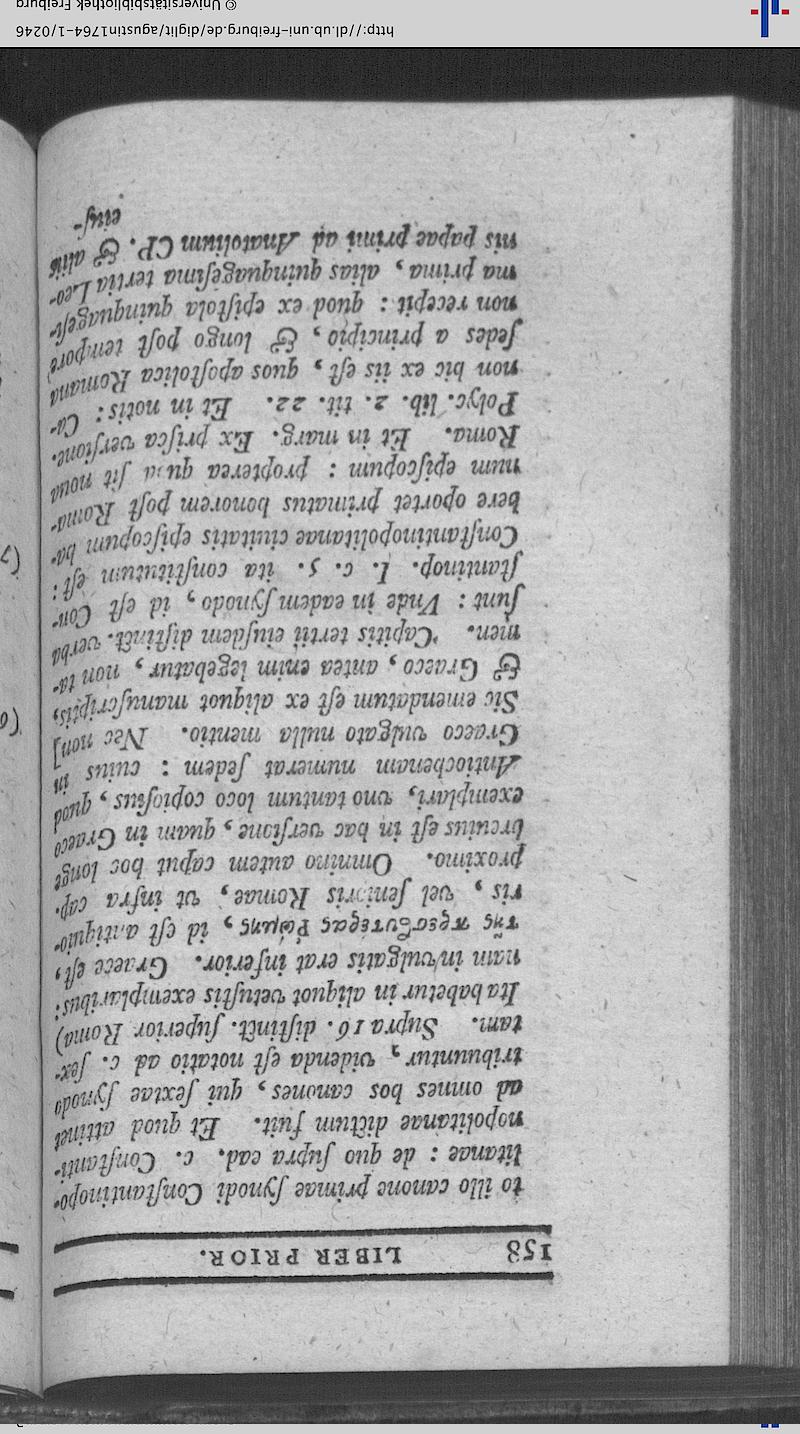 158 LIBER PRIOR.
to illo canone primae ſynodi Conſtantinopo-
litanae : de quo ſupra ead. c. Conſtanti-
nopolitanae dictum fuit. Et quod attinet
ad omnes hos canones, qui ſextae ſynodo
tribuuntur, videnda eſt notatio ad c. ſex-
tam. Supra 16. diſtinct. ſuperior Roma)
Ita habetur in aliquot vetuſtis exemplaribus:
nam in vulgatis erat inferior. Graece eſt,
τῆς πρεσβυτέρας Ρώμης, id eſt antiquio-
ris, vel ſenioris Romae, vt infra cap.
proximo. Omnino autem caput hoc longe
breuius eſt in hac verſione, quam in Graeco
exemplari, vno tantum loco copioſius, quod
Antiochenam numerat ſedem : cuius in
Graeco vulgato nulla mentio. Nec non]
Sic emendatum eſt ex aliquot manuſcriptis,
& Graeco, antea enim legebatur, non ta-
men. Capitis tertii eiuſdem diſtinct. verba
ſunt : Vnde in eadem ſynodo, id eſt Con-
ſtantinop. I. c. 5. ita conſtitutum eſt :
Conſtantinopolitanae ciuitatis epiſcopum ha-
bere oportet primatus honorem poſt Roma-
num epiſcopum : propterea quod ſit noua
Roma. Et in marg. Ex priſca verſione.
Polyc. lib. 2. tit. 22. Et in notis : Ca-
non hic ex iis eſt, quos apoſtolica Romana
ſedes a principio, & longo poſt tempore
non recepit : quod ex epiſtola quinquageſi-
ma prima, alias quinquageſima tertia Leo-
nis papae primi ad Anatolium CP. & aliis
eiuſ-
http://dl.ub.uni-freiburg.de/diglit/agustin1764-1/0246
© Universitätsbibliothek Freiburg